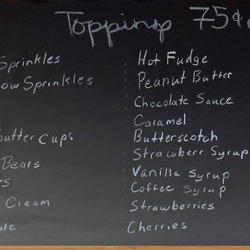 Toppings 75¢
Sprinkles
ow Sprinkles
utter Cups
Bears
s
Cream
ple
Hot Fudge
Peanut Butter
Chocolate Sauce
Caramel
Butterscotch
Strawberr Syrup
Vanilla Syrup
Coffee Syrup
Strawberries
Cherries